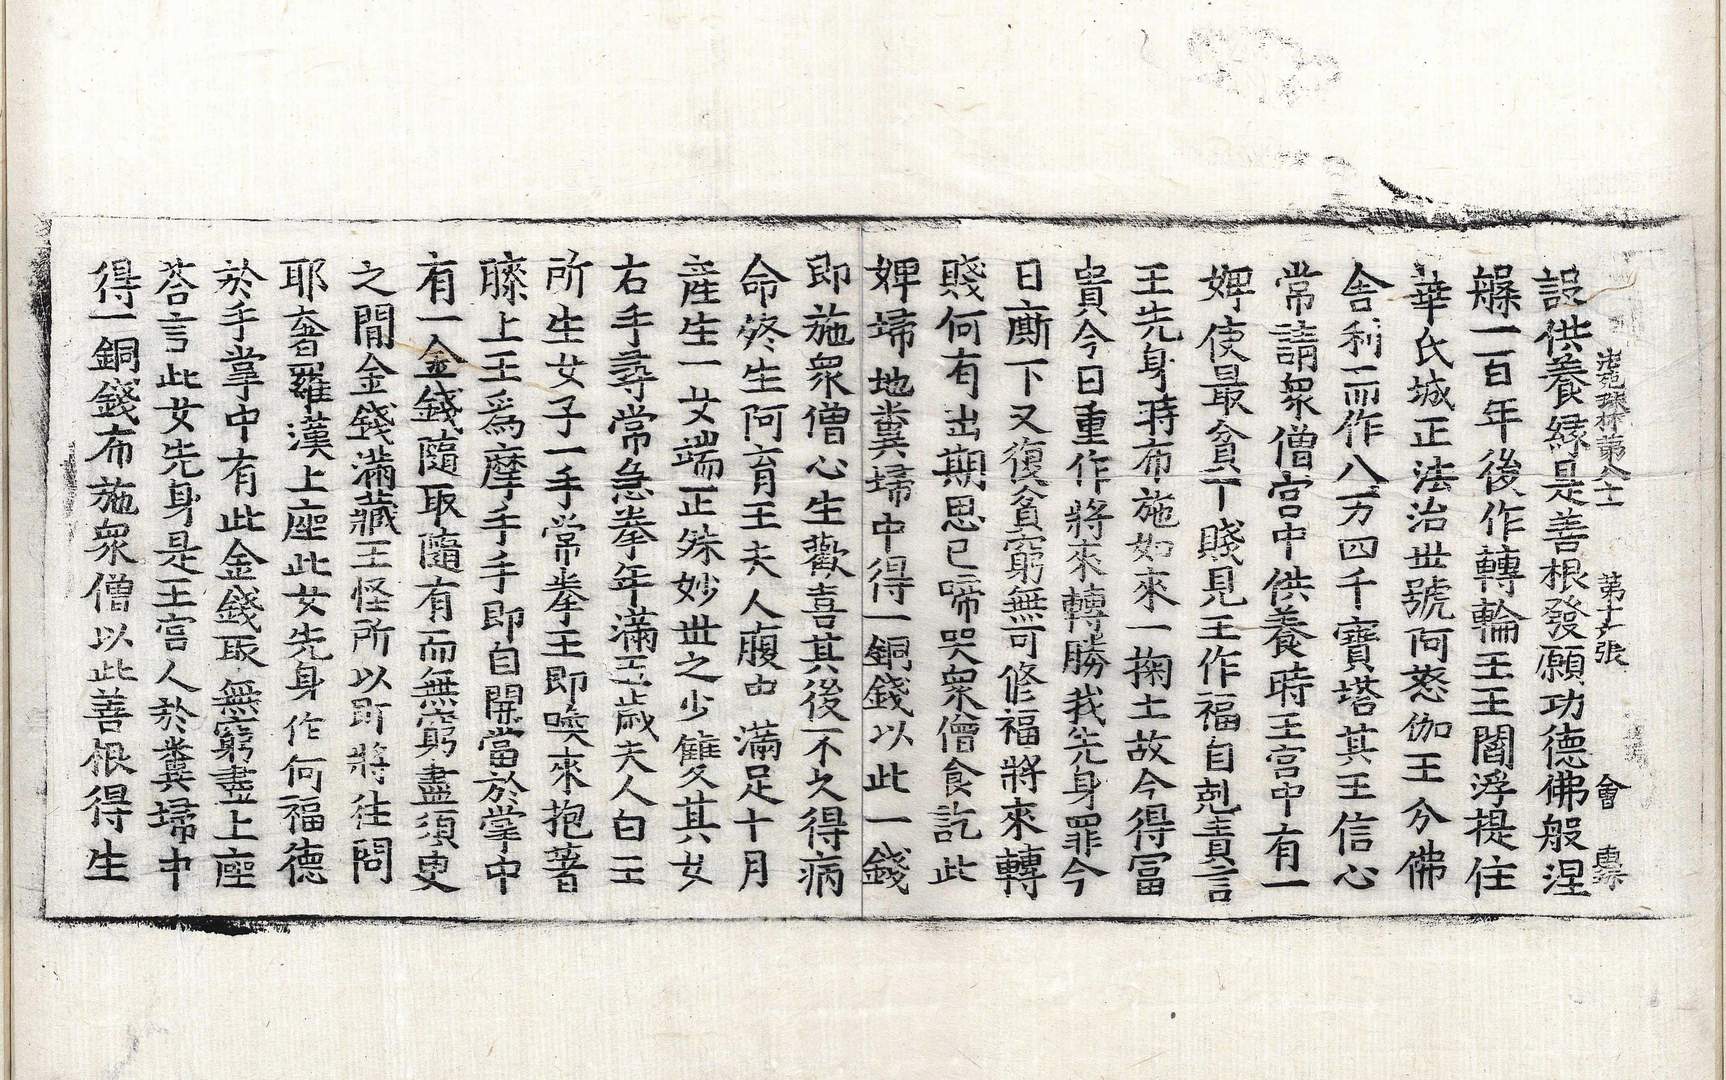 設供養緣是善根發願功德佛般涅
槃一百年後作轉輪王王閻浮提住
華氏城正法治世號阿恕伽王分佛
舍利而作八万四千寶塔其王信心
常請衆僧宮中供養時王宮中有一
婢使最貧下賤見王作福自剋責言
王先身時布施如來一掬土故今得富
貴今日重作將來轉勝我先身罪今
日廝下又復貧窮無可修福將來轉
賤何有出期思已啼哭衆僧食訖此
婢掃地糞掃中得一銅錢以此一錢
即施衆僧心生歡喜其後不久得病
命終生阿育王夫人腹中滿足十月
産生一女端正殊妙世之少雙其女
右手尋常急拳年滿五歲夫人白王
所生女子一手常拳王即喚來抱著
膝上王爲摩手手即自開當於掌中
有一金錢隨取隨有而無窮盡須臾
之間金錢滿藏王怪所以即將往問
耶奢羅漢上座此女先身作何福德
於手掌中有此金錢取無窮盡上座
荅言此女先身是王宮人於糞掃中
得一銅錢布施衆僧以此善根得生